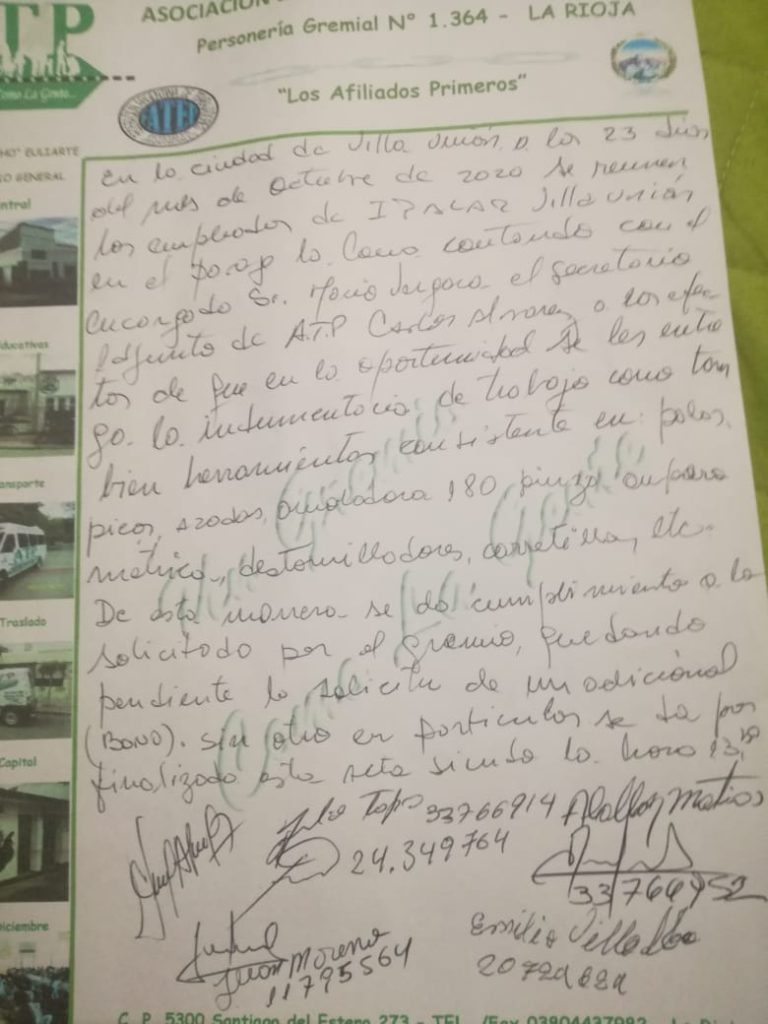 TP
ASOCIACION
Personería Gremial N° 1.364 - LA RIOJA
"Los Afiliados Primeros"
Como La Gente...
ATP
HO" EULIARTE
IO GENERAL
ntral
ducativas
ansporte
Traslado
Capital
Diciembre
En la ciudad de Villa Unión a los 23 días
del mes de octubre de 2020 se reunen
los empleados de IPALAR Villa Unión
en el paraje la Cano contando con el
encargado Sr. Mario Vergara el secretario
Adjunto de ATP Carlos Alvarez a los efec
tos de que en la oportunidad se les entre
ga la indumentaria de trabajo como tam
bien herramientas consistente en: palas,
picos, azadas, amoladora 180 pinza amparo
métrica, destornilladores, carretilla, etc.
De esta manera se da cumplimiento a lo
solicitado por el gremio, quedando
pendiente la solicitu de un adicional
(BONO). Sin otro en particular se da por
finalizada esta acta siendo la hora 13,
33766914
24.349.764
Matias
33766952
Juan Moreno
11795564
Emilio Villalba
C. P. 5300 Santiago del Estero 273 - TEL. /Fax 03804437092